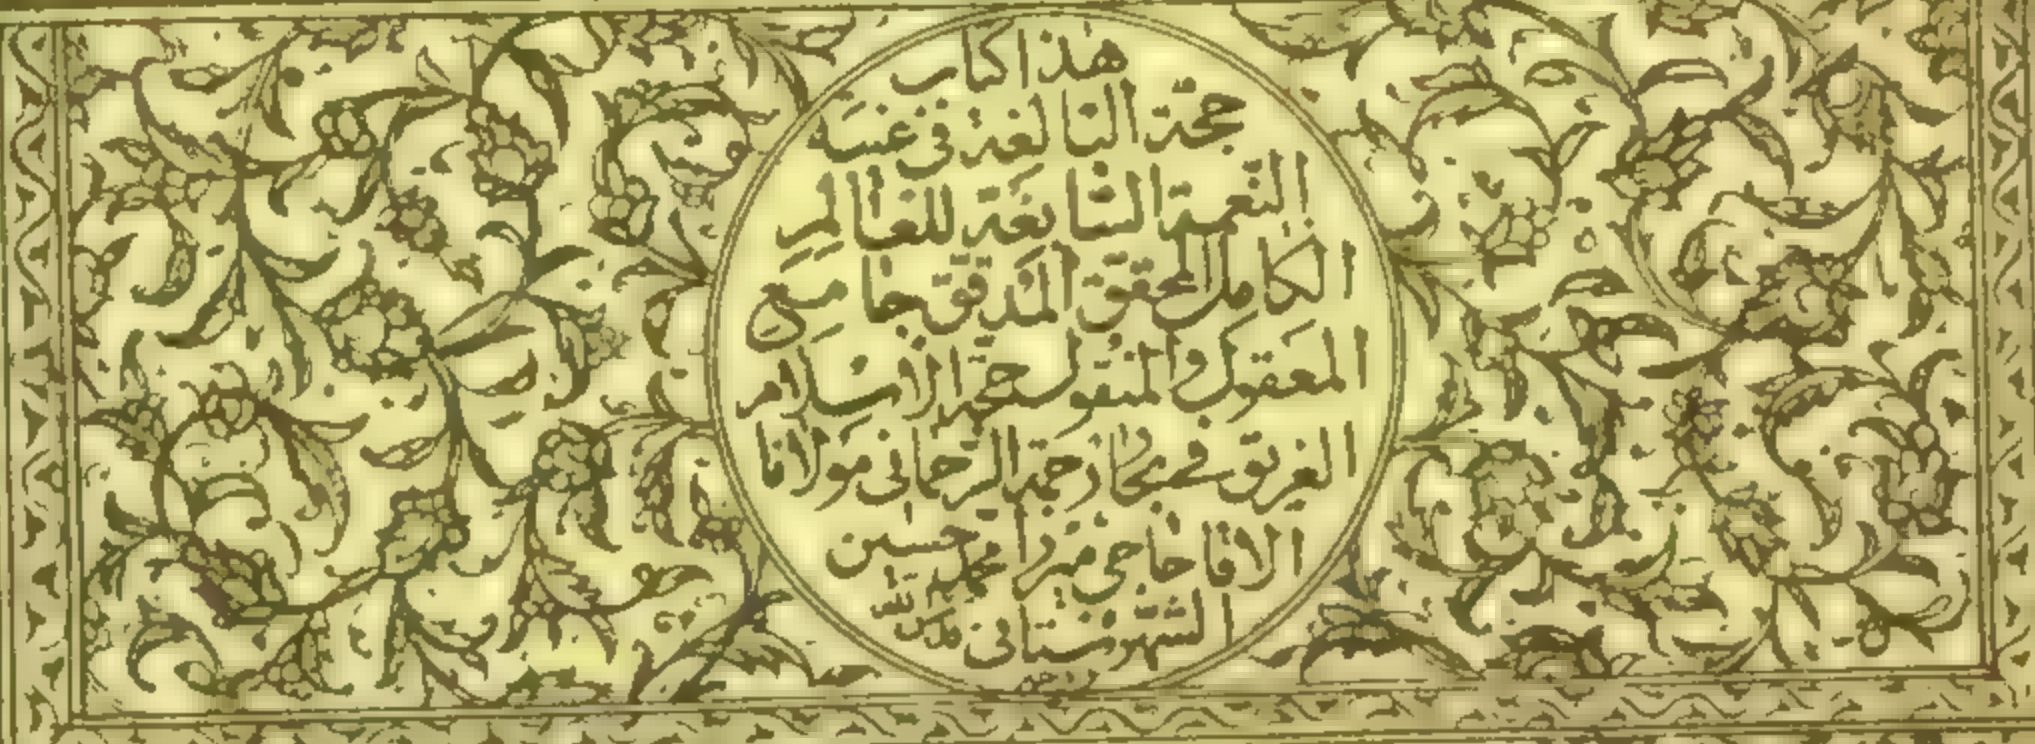 هذا كتاب
حجّة البالغة في غيبة
النّعمة السّابغة للعالم
الكامل المحقّق المدقّق جامع
المعقول والمنقول حجّة الاسلام
الغريق في بحار رحمة الرحمانى مولانا
الاقا حاجى ميرزا محمد حسين
الشهرستانى